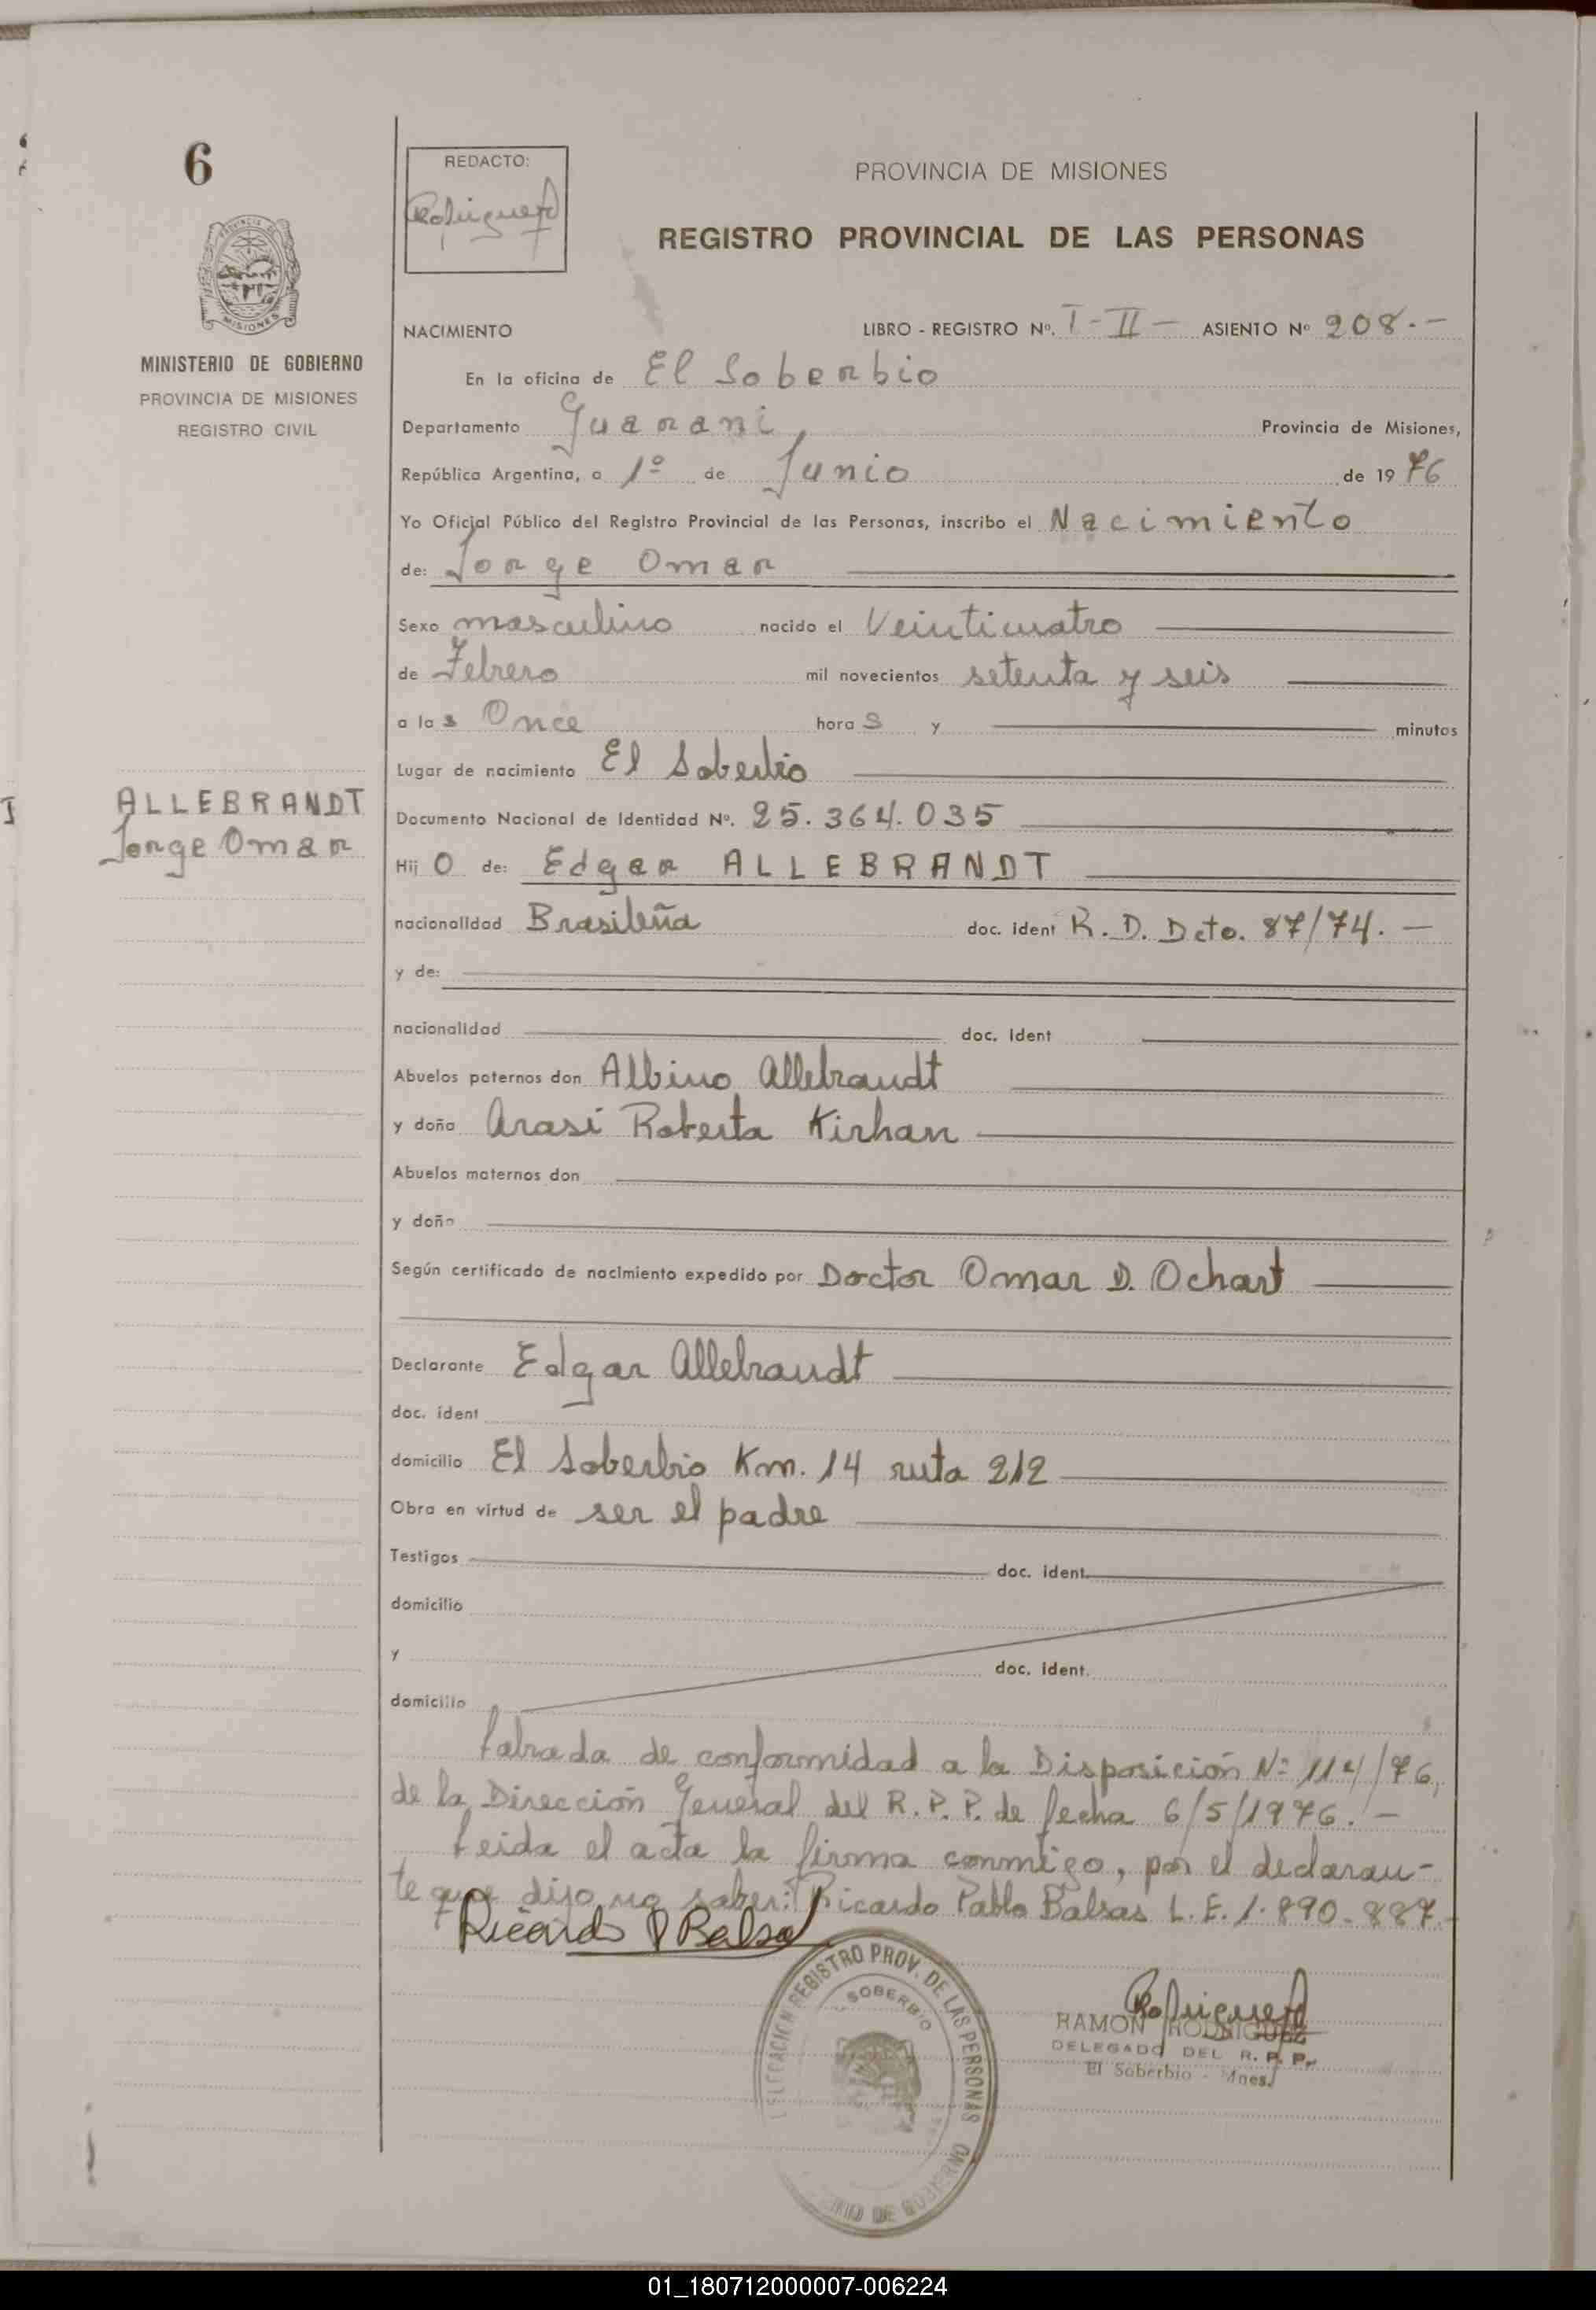 6
REDACTO:
Rodriguez
PROVINCIA DE MISIONES
REGISTRO PROVINCIAL DE LAS PERSONAS
MISIONES
MINISTERIO DE GOBIERNO
PROVINCIA DE MISIONES
REGISTRO CIVIL
NACIMIENTO LIBRO - REGISTRO Nº. I - II — ASIENTO Nº 208.-
En la oficina de El Soberbio
Departamento Guarani, Provincia de Misiones,
República Argentina, a 1º de Junio de 1976
Yo Oficial Público del Registro Provincial de las Personas, inscribo el Nacimiento
de: Jorge Omar
Sexo masculino nacido el Veinticuatro
de Febrero mil novecientos setenta y seis
a las Once horas y minutos
Lugar de nacimiento El Soberbio
ALLEBRANDT
Jorge Omar
Documento Nacional de Identidad Nº. 25.364.035
Hijo de: Edgar ALLEBRANDT
nacionalidad Brasileña doc. ident R. D. Dcto. 87/74. —
y de:
nacionalidad doc. ident
Abuelos paternos don Albino Allebrandt
y doña Arasi Roberta Kirhan
Abuelos maternos don
y doña
Según certificado de nacimiento expedido por Doctor Omar D. Ochart
Declarante Edgar Allebrandt
doc. ident
domicilio El Soberbio Km. 14 ruta 212
Obra en virtud de ser el padre
Testigos doc. ident.
domicilio
y doc. ident.
domicilio
Labrada de conformidad a la Disposición Nº 114/76,
de la Dirección General del R. P. P. de fecha 6/5/1976. —
Leida el acta la firma conmigo, por el declaran-
te que dijo no saber: Ricardo Pablo Balsas L. E. 1.890.887.-
Ricardo P Balsa
DELEGACION REGISTRO PROV. DE LAS PERSONAS
SOBERBIO
DE GOBIERNO
Rodriguez
RAMON RODRIGUEZ
DELEGADO DEL R. P. P.
El Soberbio - Mnes.
01_180712000007-006224